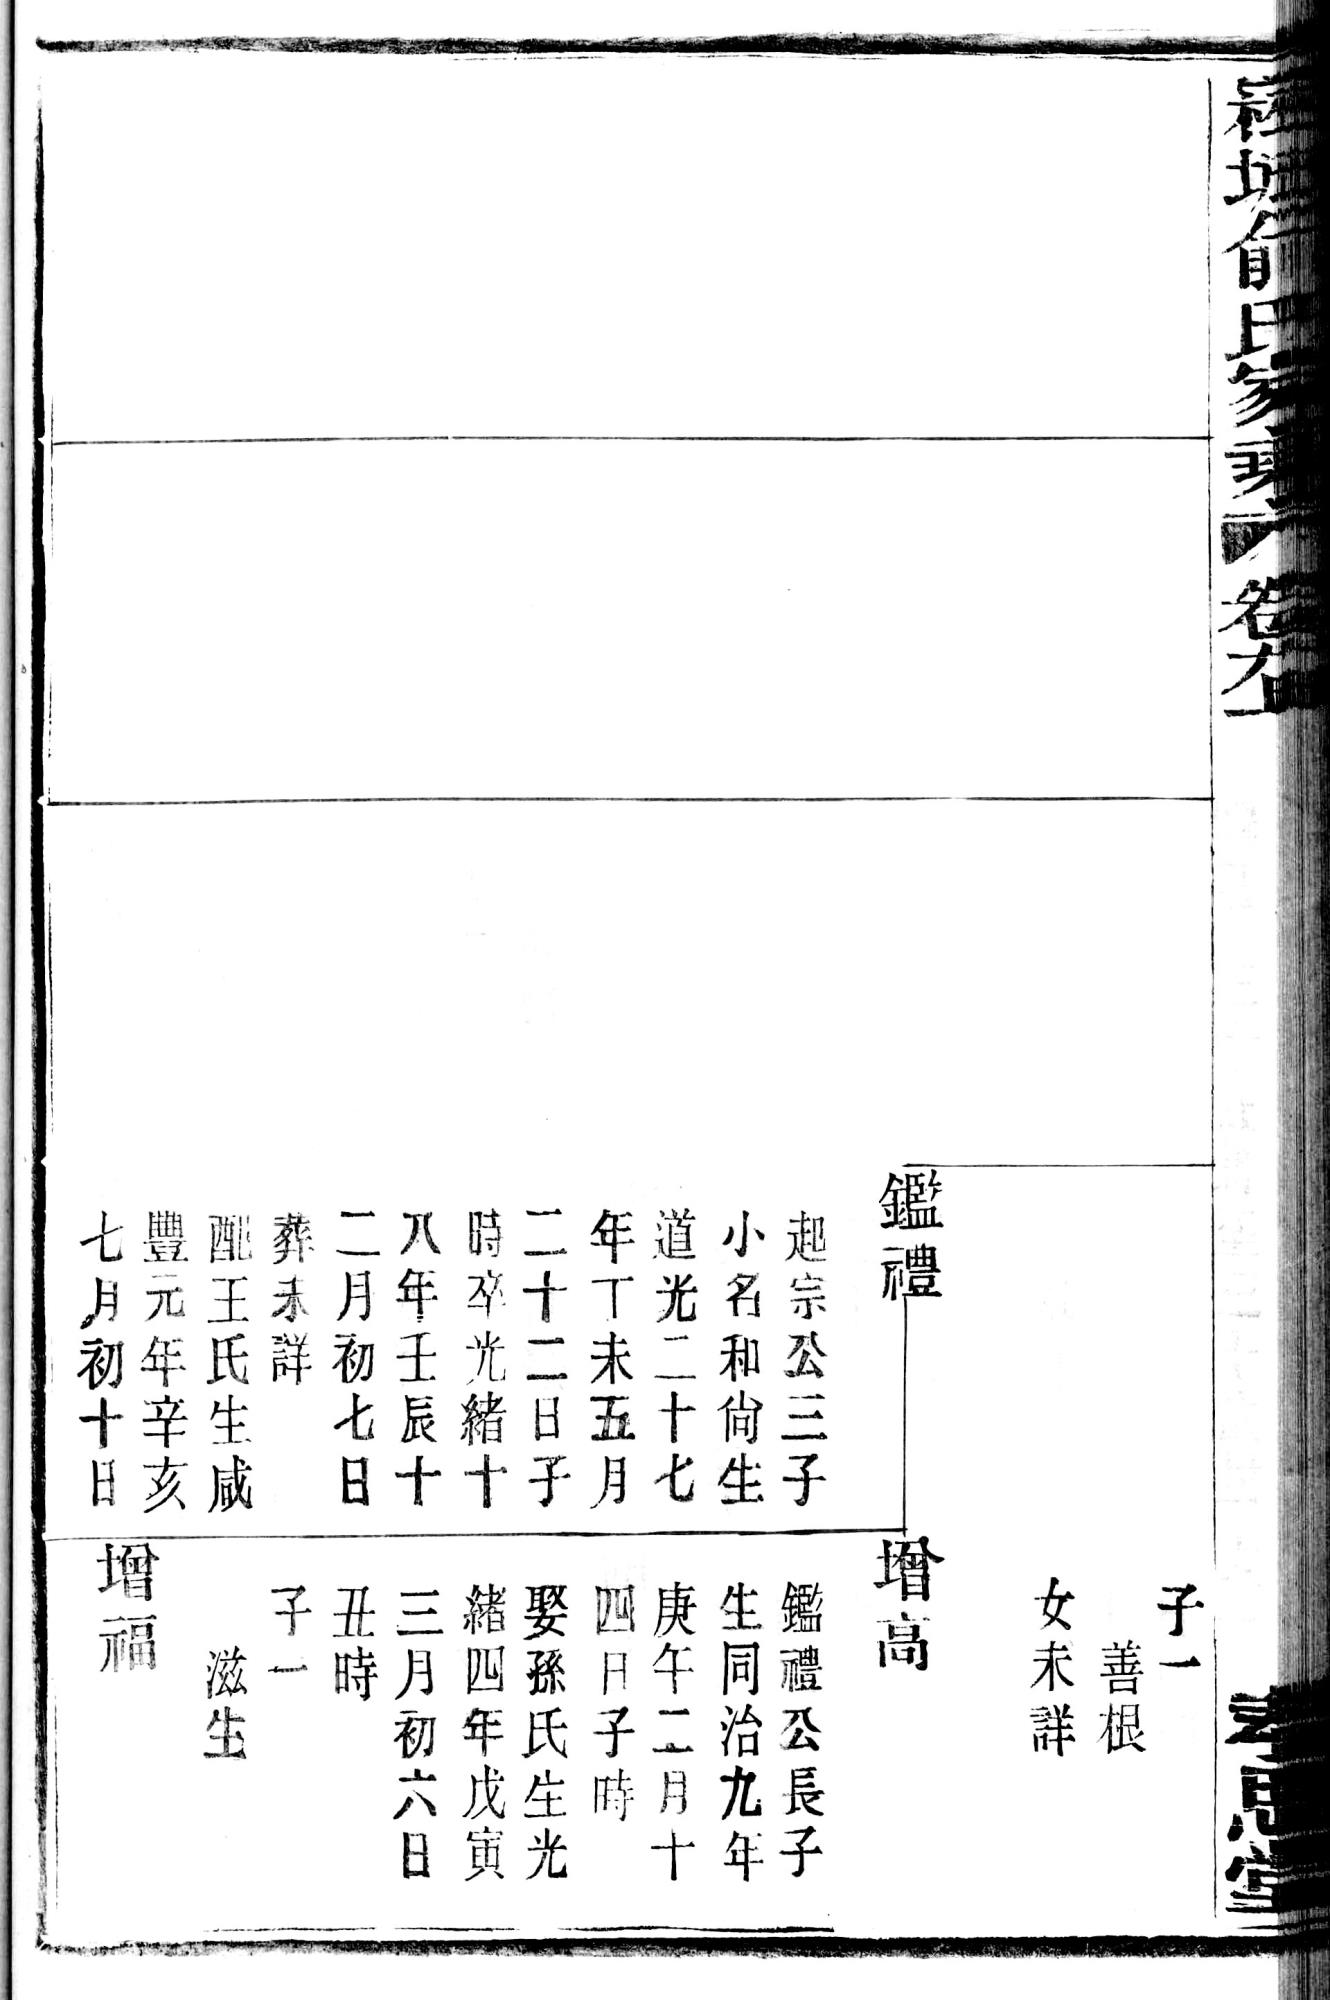 俞氏家乘
子一
善根
女未詳
鑑禮
起宗公三子
小名和尙生
道光二十七
年丁未五月
二十二日子
時卒光緒十
八年壬辰十
二月初七日
葬未詳
配王氏生咸
豐元年辛亥
七月初十日
增高
鑑禮公長子
生同治九年
庚午二月十
四日子時
娶孫氏生光
緒四年戊寅
三月初六日
丑時
子一
滋生
增福
孝思堂